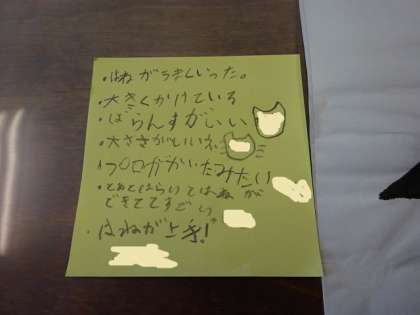 ・はねがうまくいった。
・大きくかけている
・ばらんすがいい
・大きさがいいネ
・プロがかいたみたい
・とめとはらいてはねが
できててすごいっ
・はねが上手!